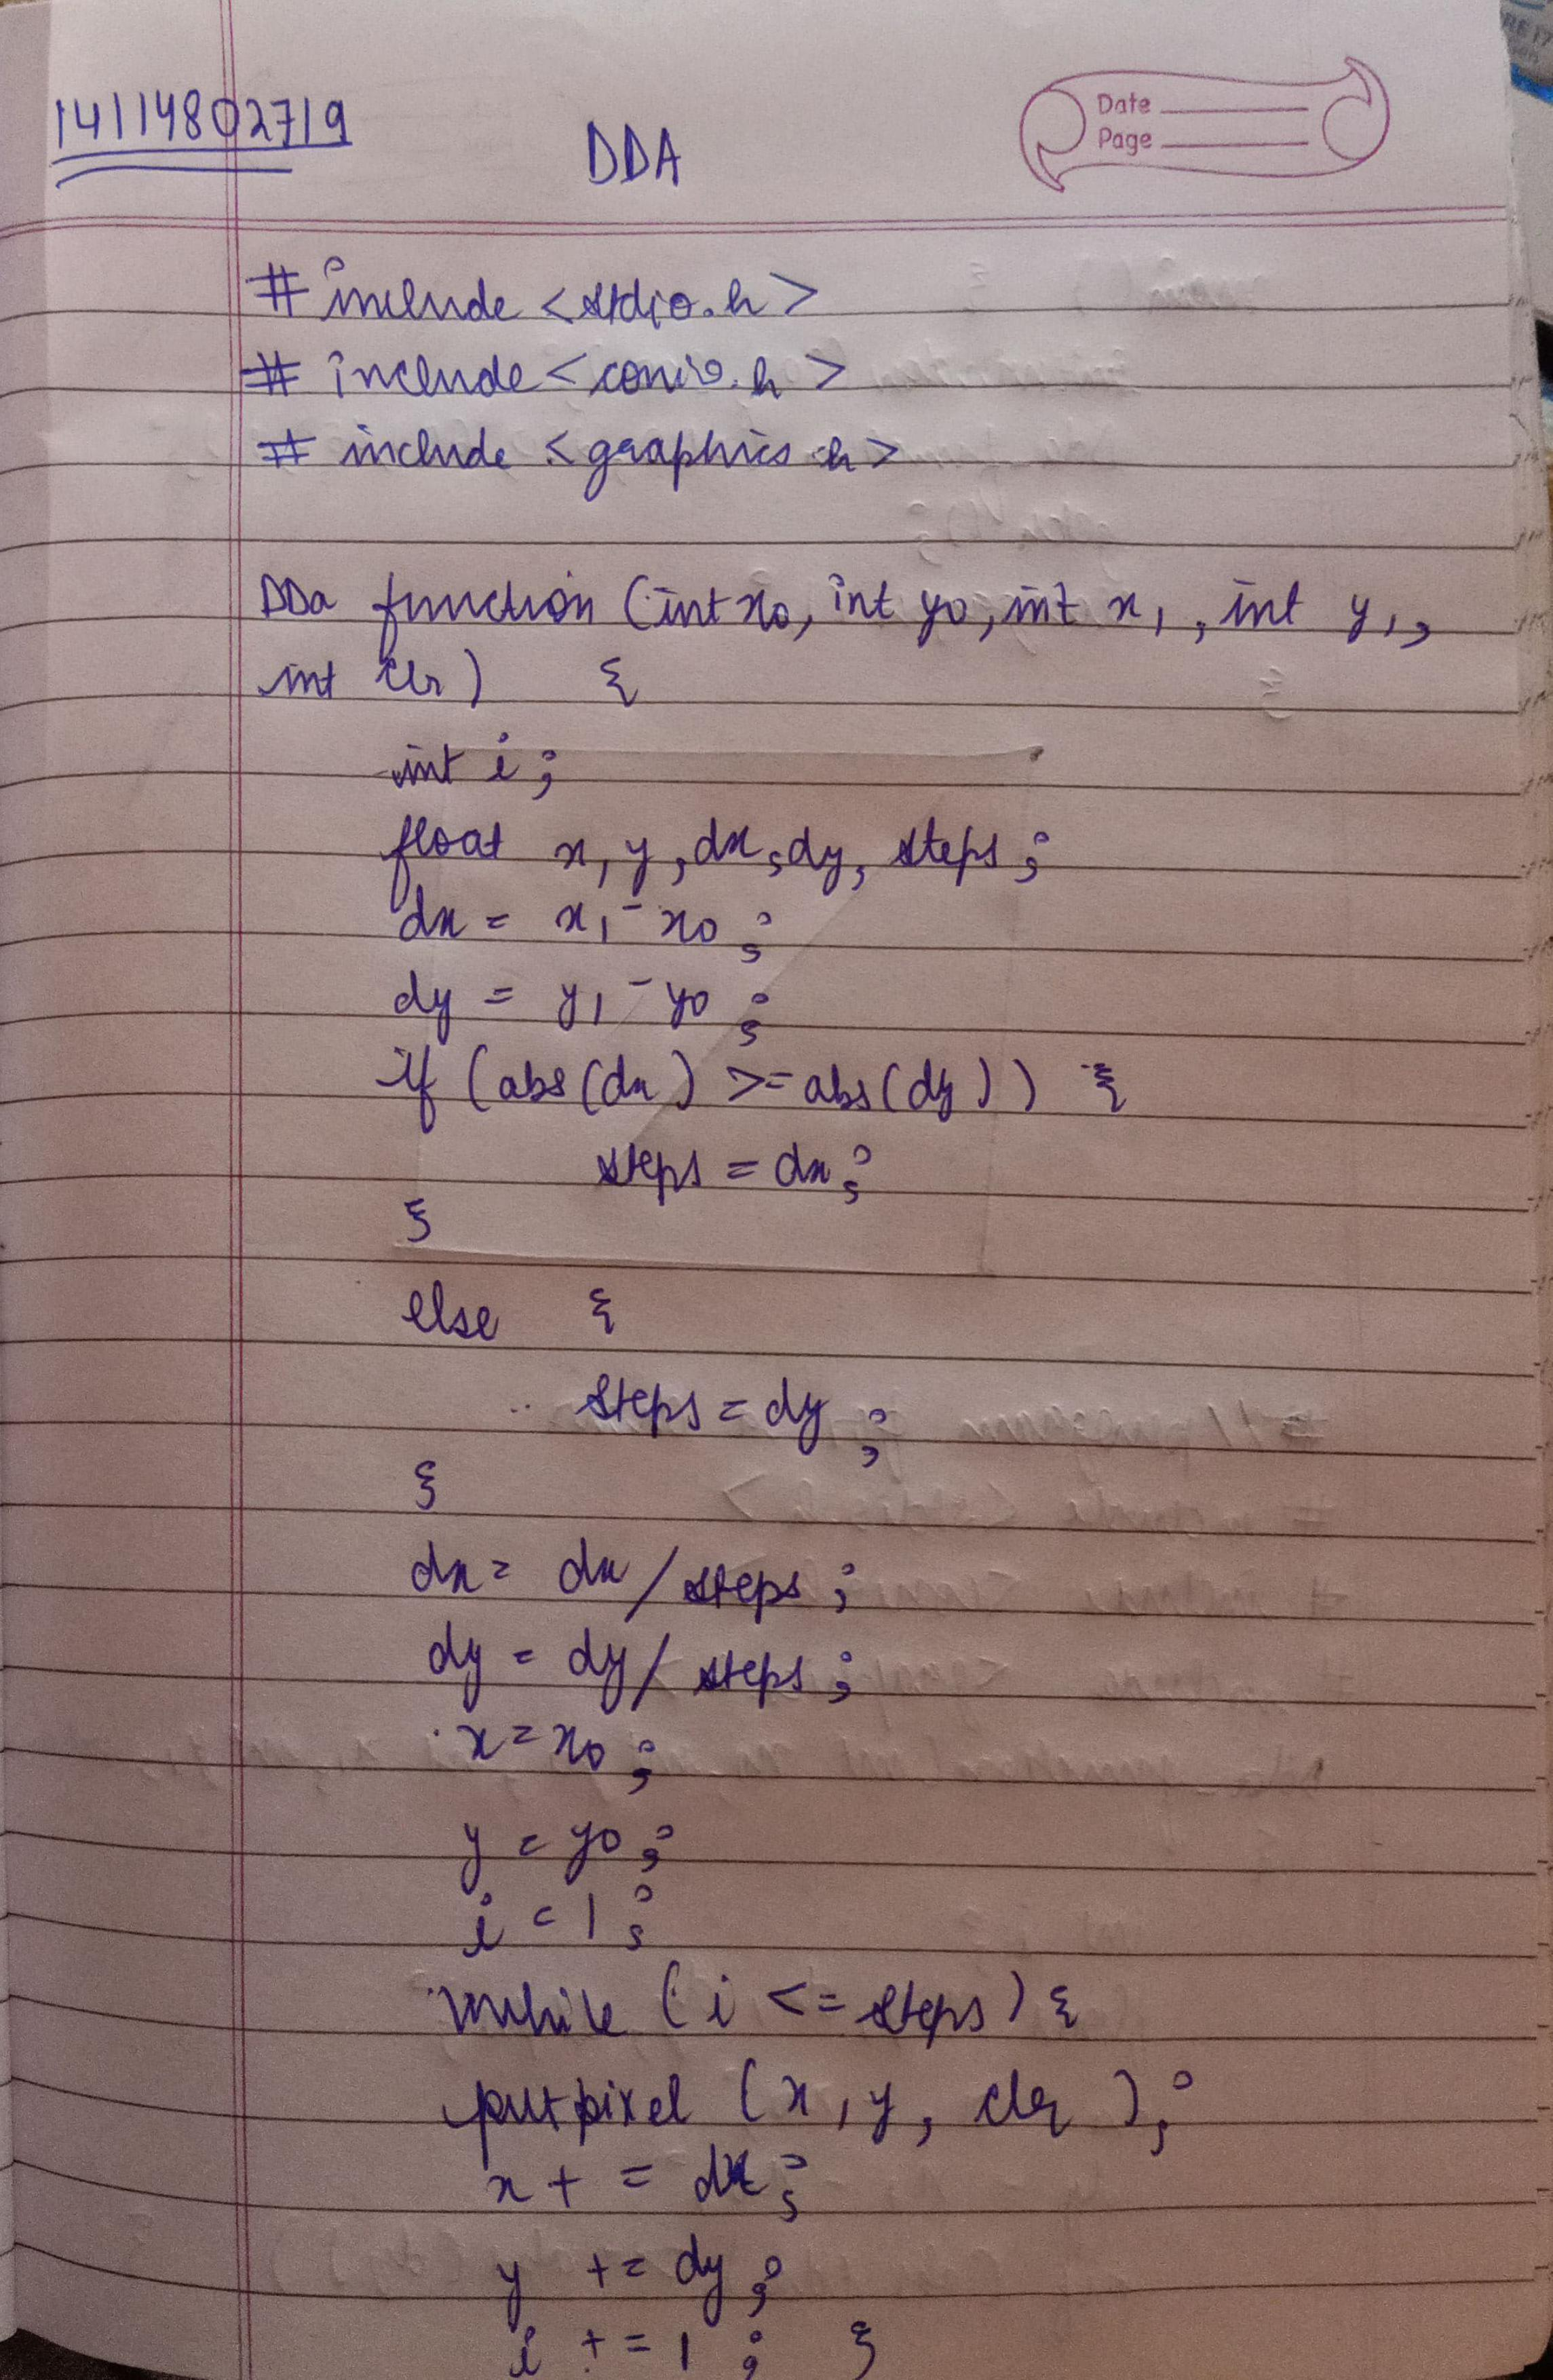 14114802719
DDA
Date
Page
# include <stdio.h>
# include <conio.h>
# include <graphics.h>
DDa function (int x0, int y0, int x1, int y1,
int clr) {
int i;
float x, y, dx, dy, steps;
dx = x1 - x0;
dy = y1 - y0;
if (abs(dx) >= abs(dy)) {
steps = dx;
}
else {
steps = dy;
}
dx = dx / steps;
dy = dy / steps;
x = x0;
y = y0;
i = 1;
while (i <= steps) {
putpixel (x, y, clr);
x + = dx;
y += dy;
i += 1; }